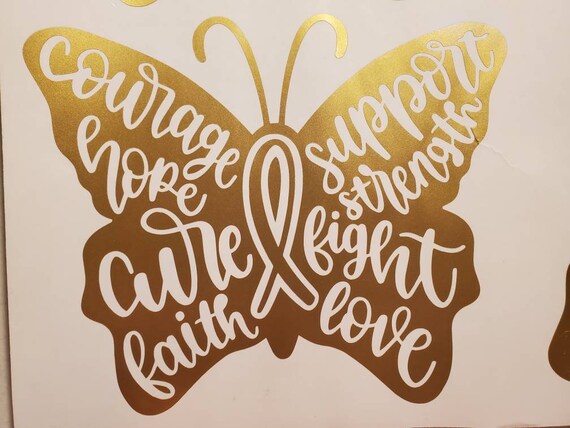 courage
hope
cure
faith
support
strength
fight
love